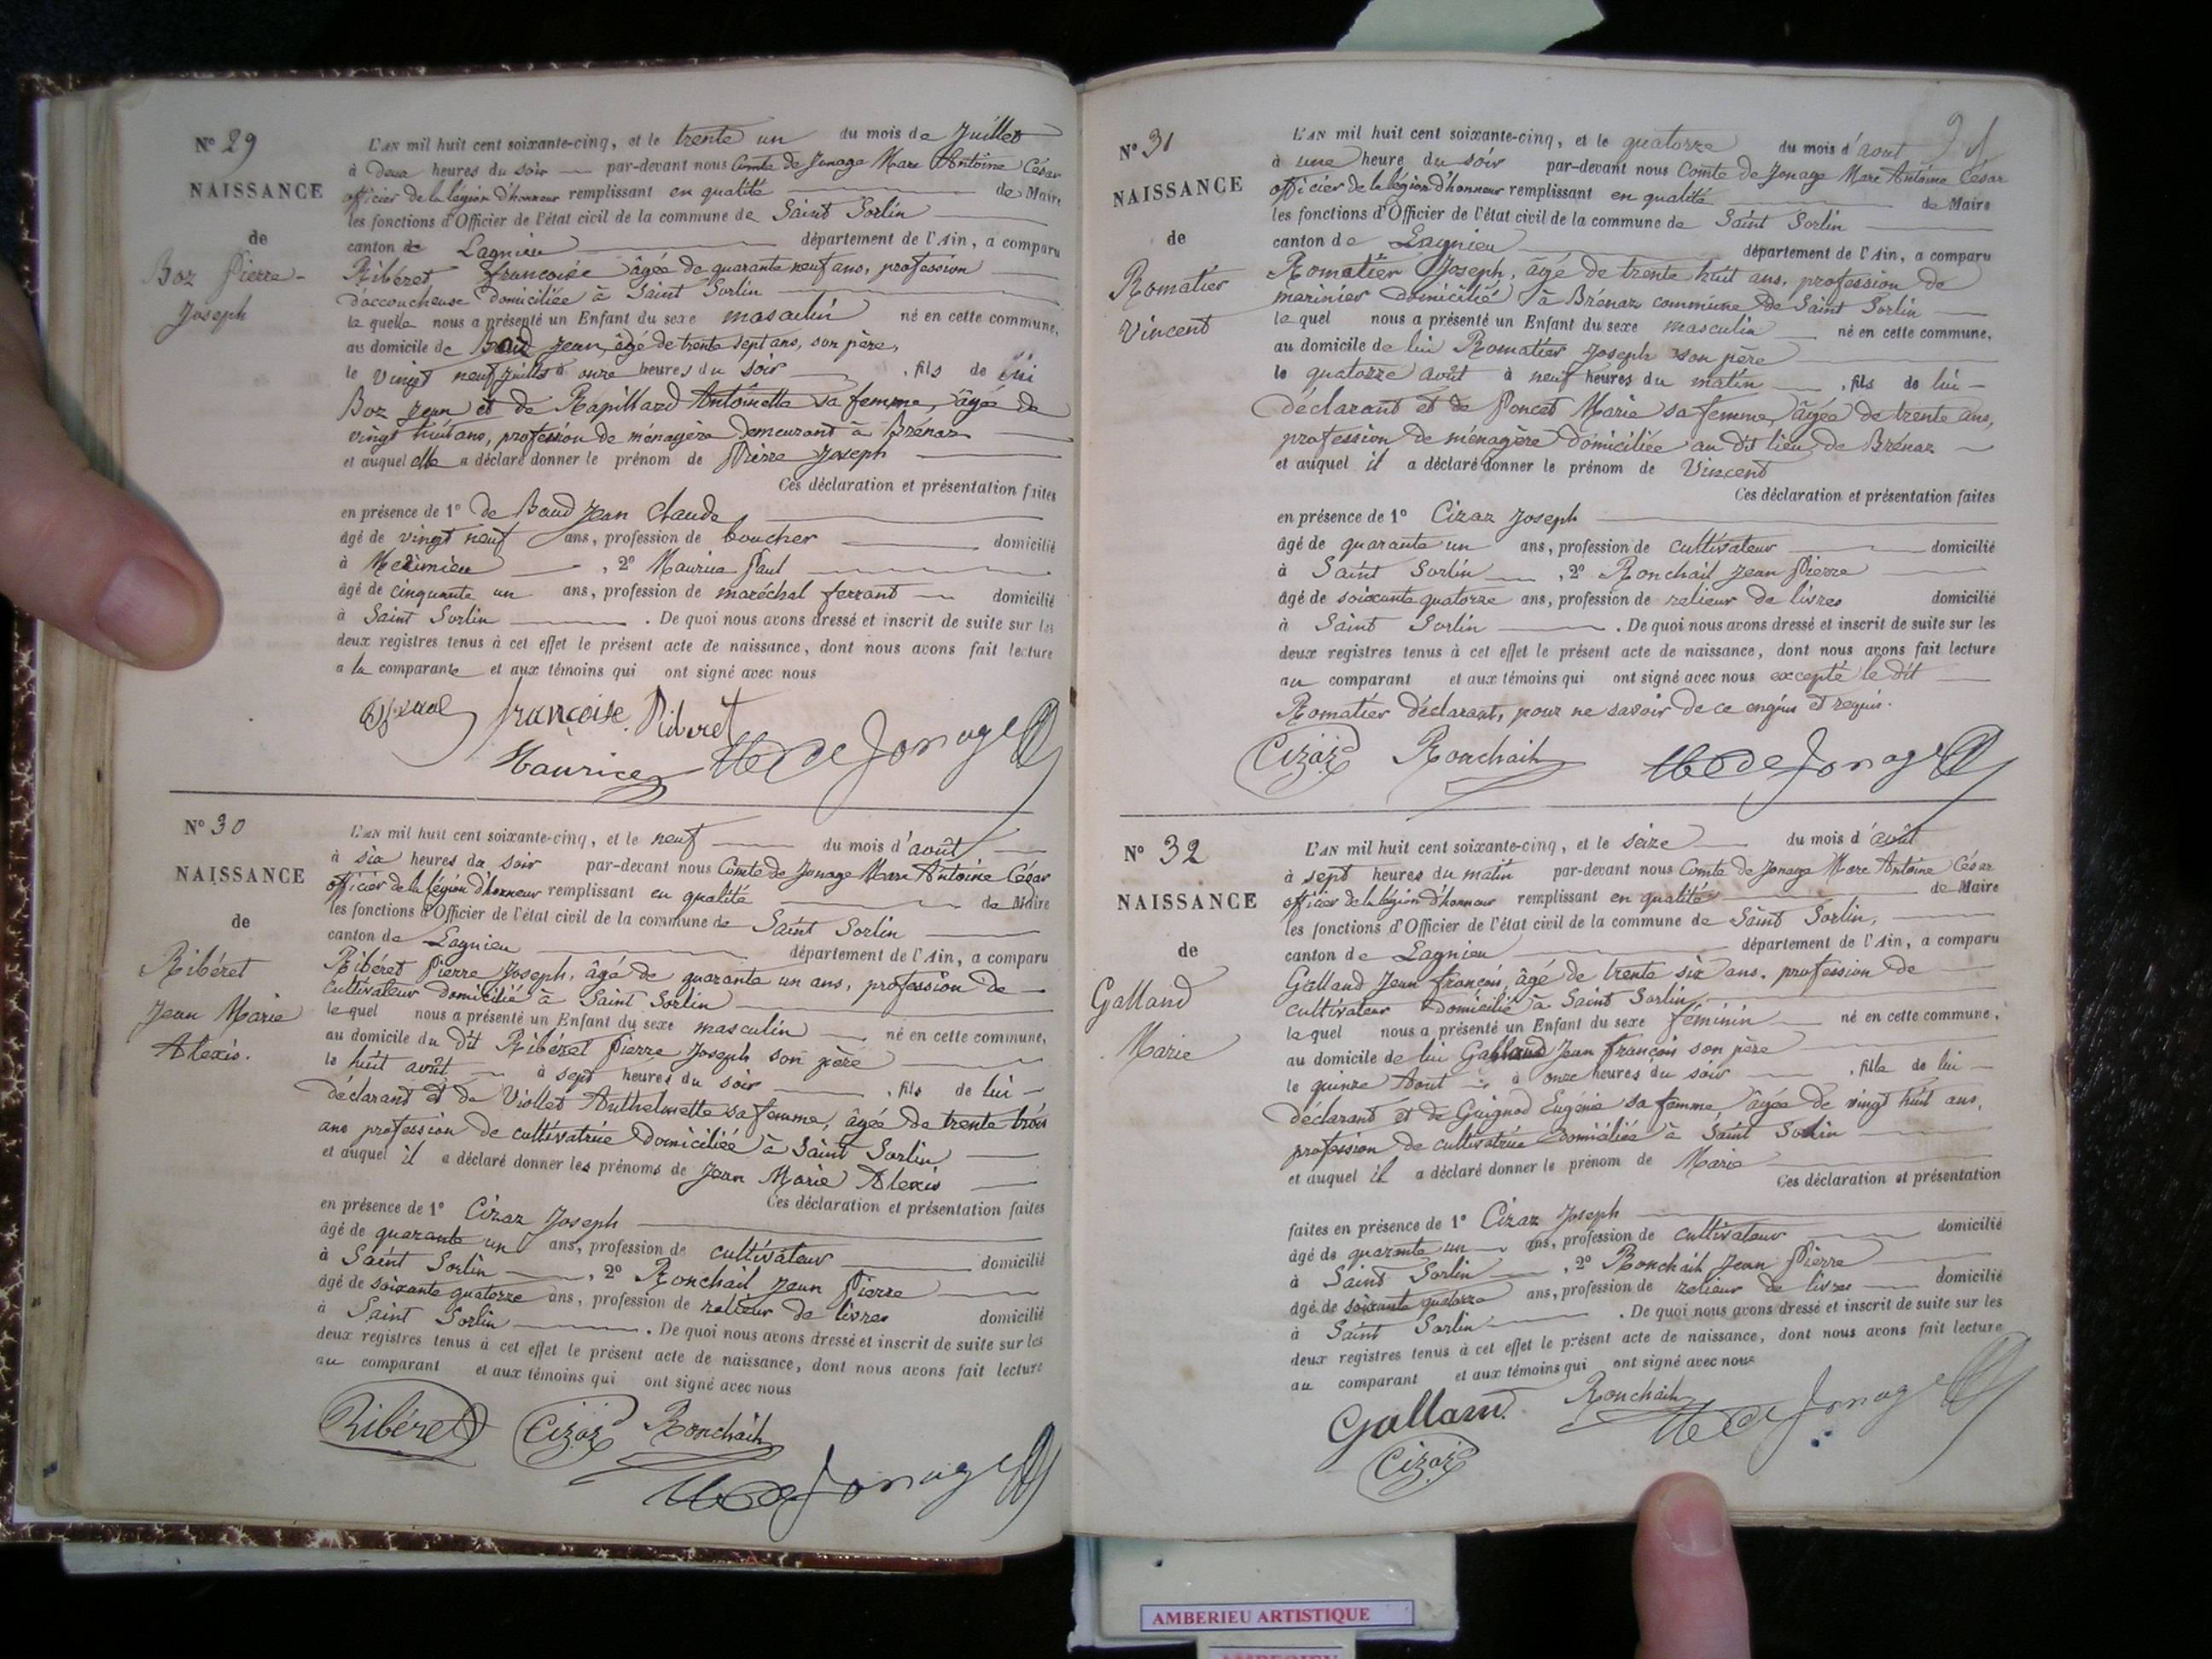 N° 29
NAISSANCE
de
Boz Pierre-
Joseph
L'AN mil huit cent soixante-cinq, et le trente un du mois de Juillet
à deux heures du soir par-devant nous Comte de Jonage Marc Antoine César
officier de la légion d'honneur remplissant en qualité de Maire
les fonctions d'Officier de l'état civil de la commune de Saint Sorlin
canton de Lagnieu département de l'Ain, a comparu
Ribéret françoise âgée de quarante neuf ans, profession
d'accoucheuse domiciliée à Saint Sorlin
la quelle nous a présenté un Enfant du sexe masculin né en cette commune,
au domicile de Jean, âgé de trente sept ans, son père,
le vingt neuf juillet à onze heures du soir , fils de lui
Boz Jean et de Rapillard Antoinette sa femme, âgée de
vingt huit ans, profession de ménagère demeurant à Brénaz
et auquel elle a déclaré donner le prénom de Pierre Joseph
Ces déclaration et présentation faites
en présence de 1° de Baud Jean Claude
âgé de vingt neuf ans, profession de boucher domicilié
à Meximieu , 2° Maurice Paul
âgé de cinquante un ans, profession de maréchal ferrant domicilié
à Saint Sorlin . De quoi nous avons dressé et inscrit de suite sur les
deux registres tenus à cet effet le présent acte de naissance, dont nous avons fait lecture
a la comparante et aux témoins qui ont signé avec nous
françoise Riberet
Maurice de Jonage
N° 30
NAISSANCE
de
Ribéret
Jean Marie
Alexis.
L'AN mil huit cent soixante-cinq, et le neuf du mois d'août
à six heures du soir par-devant nous Comte de Jonage Marc Antoine César
officier de la légion d'honneur remplissant en qualité de Maire
les fonctions d'Officier de l'état civil de la commune de Saint Sorlin
canton de Lagnieu département de l'Ain, a comparu
Ribéret Pierre Joseph, âgé de quarante un ans, profession de
cultivateur domicilié à Saint Sorlin
le quel nous a présenté un Enfant du sexe masculin né en cette commune,
au domicile du dit Ribéret Pierre Joseph son père
le huit août à sept heures du soir , fils de lui
déclarant et de Viollet Anthelmette sa femme, âgée de trente trois
ans profession de cultivatrice domiciliée à Saint Sorlin
et auquel il a déclaré donner les prénoms de Jean Marie Alexis
Ces déclaration et présentation faites
en présence de 1° Cizaz Joseph
âgé de quarante un ans, profession de cultivateur domicilié
à Saint Sorlin , 2° Ronchail Jean Pierre
âgé de soixante quatorze ans, profession de relieur de livres domicilié
à Saint Sorlin . De quoi nous avons dressé et inscrit de suite sur les
deux registres tenus à cet effet le présent acte de naissance, dont nous avons fait lecture
au comparant et aux témoins qui ont signé avec nous
Ribéret Cizaz Ronchail
de Jonage
N° 31
NAISSANCE
de
Romatier
Vincent
L'AN mil huit cent soixante-cinq, et le quatorze du mois d'aout
à une heure du soir par-devant nous Comte de Jonage Marc Antoine César
officier de la légion d'honneur remplissant en qualité de Maire
les fonctions d'Officier de l'état civil de la commune de Saint Sorlin
canton de Lagnieu département de l'Ain, a comparu
Romatier Joseph, âgé de trente huit ans, profession de
marinier domicilié à Brénaz commune de Saint Sorlin
le quel nous a présenté un Enfant du sexe masculin né en cette commune,
au domicile de lui Romatier Joseph son père
le quatorze août à neuf heures du matin , fils de lui
déclarant et de Poncet Marie sa femme, âgée de trente ans,
profession de ménagère domiciliée au dit lieu de Brénaz
et auquel il a déclaré donner le prénom de Vincent
Ces déclaration et présentation faites
en présence de 1° Cizaz Joseph
âgé de quarante un ans, profession de cultivateur domicilié
à Saint Sorlin , 2° Ronchail Jean Pierre
âgé de soixante quatorze ans, profession de relieur de livres domicilié
à Saint Sorlin . De quoi nous avons dressé et inscrit de suite sur les
deux registres tenus à cet effet le présent acte de naissance, dont nous avons fait lecture
au comparant et aux témoins qui ont signé avec nous excepté le dit
Romatier déclarant, pour ne savoir de ce enquis et requis.
Cizaz Ronchail de Jonage
N° 32
NAISSANCE
de
Galland
Marie
L'AN mil huit cent soixante-cinq, et le seize du mois d'août
à sept heures du matin par-devant nous Comte de Jonage Marc Antoine César
officier de la légion d'honneur remplissant en qualité de Maire
les fonctions d'Officier de l'état civil de la commune de Saint Sorlin,
canton de Lagnieu département de l'Ain, a comparu
Galland Jean françois, âgé de trente six ans, profession de
cultivateur domicilié à Saint Sorlin
le quel nous a présenté un Enfant du sexe féminin né en cette commune,
au domicile de lui Galland Jean françois son père
le quinze Aout à onze heures du soir , fille de lui
déclarant et de Guignod Eugénie sa femme, âgée de vingt huit ans,
profession de cultivatrice domiciliée à Saint Sorlin
et auquel il a déclaré donner le prénom de Marie
Ces déclaration et présentation
faites en présence de 1° Cizaz Joseph
âgé de quarante un ans, profession de cultivateur domicilié
à Saint Sorlin , 2° Ronchail Jean Pierre
âgé de soixante quatorze ans, profession de relieur de livres domicilié
à Saint Sorlin . De quoi nous avons dressé et inscrit de suite sur les
deux registres tenus à cet effet le présent acte de naissance, dont nous avons fait lecture
au comparant et aux témoins qui ont signé avec nous
Galland Ronchail de Jonage
Cizaz
AMBERIEU ARTISTIQUE